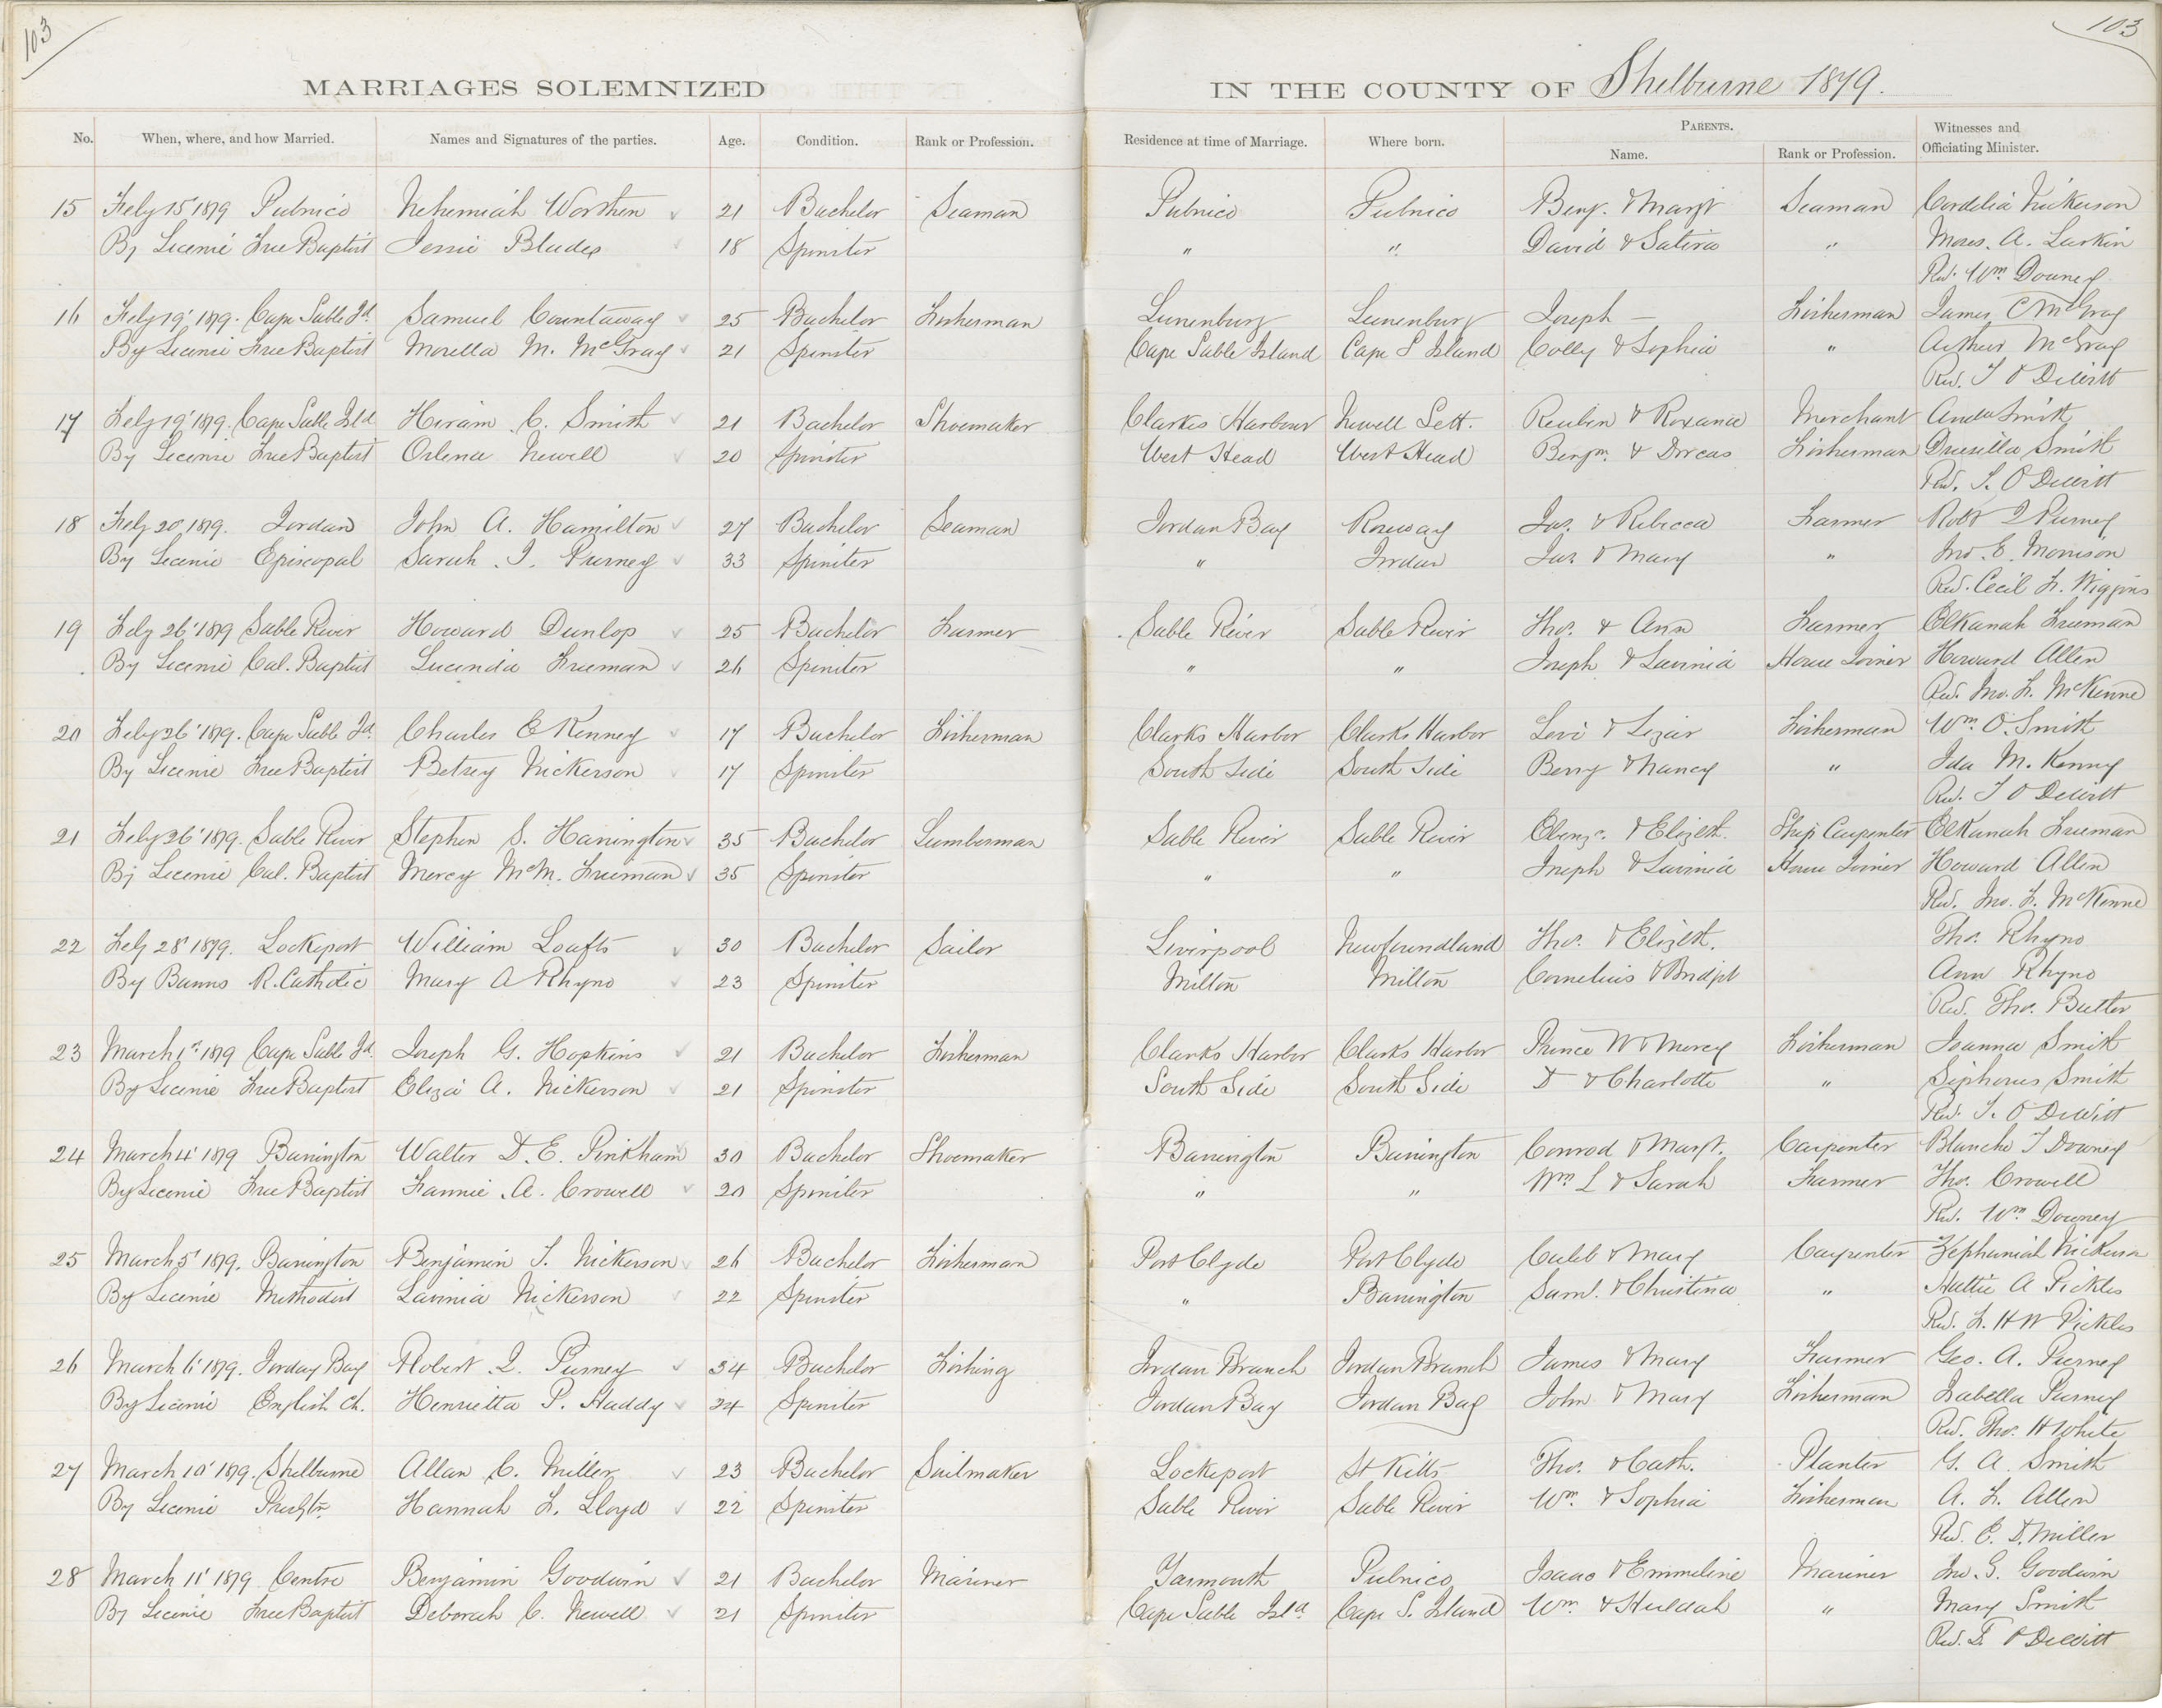 103
103
MARRIAGES SOLEMNIZED IN THE COUNTY OF Shelburne 1879.
No. When, where, and how Married. Names and Signatures of the parties. Age. Condition. Rank or Profession. Residence at time of Marriage. Where born. PARENTS. Name. Rank or Profession. Witnesses and Officiating Minister.
15 Feby 15 1879 Pubnico Nehemiah Worthen 21 Bachelor Seaman Pubnico Pubnico Benj. & Margt Seaman Cordelia Nickerson
By License Free Baptist Jessie Blades 18 Spinster " " David & Satira " Moses. A. Larkin
Rev. Wm Downey
16 Feby 19' 1879. Cape Sable Id. Samuel Countaway 25 Bachelor Fisherman Lunenburg Lunenburg Joseph — Fisherman James C McGray
By License Free Baptist Morella M. McGray 21 Spinster Cape Sable Island Cape S Island Colly & Sophia " Arthur McGray
Rev. T O Dewitt
17 Feby 19' 1879. Cape Sable Isld Hiram C. Smith 21 Bachelor Shoemaker Clarkes Harbour Newell Sett. Reuben & Roxana Merchant Smith
By License Free Baptist Orlena Newell 20 Spinster West Head West Head Benjm. & Dorcas Fisherman Drusilla Smith
Rev. T. O Dewitt
18 Feby 20' 1879. Jordan John A. Hamilton 27 Bachelor Seaman Jordan Bay Roseway Jas. & Rebecca Farmer Robt I Purney
By License Episcopal Sarah. I. Purney 33 Spinster " Jordan Jas. & Mary " Jno. E. Morrison
Rev. Cecil F. Wiggins
19 Feby 26' 1879 Sable River Howard Dunlop 25 Bachelor Farmer Sable River Sable River Thos. & Ann Farmer Elkanah Freeman
By License Cal. Baptist Lucinda Freeman 26 Spinster " " Joseph & Lavinia House Joiner Howard Allen
Rev. Jno. F. McKenne
20 Feby 26' 1879. Cape Sable Id. Charles E Kenney 17 Bachelor Fisherman Clarks Harbor Clarks Harbor Levi & Lizar Fisherman Wm O. Smith
By License Free Baptist Betsey Nickerson 17 Spinster South Side South Side Berry & Nancy " Ida M. Kenny
Rev. T O Dewitt
21 Feby 26' 1879. Sable River Stephen S. Harrington 35 Bachelor Lumberman Sable River Sable River Ebenzr. & Elizbth. Ship Carpenter Elkanah Freeman
By License Cal. Baptist Mercy McM. Freeman 35 Spinster " " Joseph & Lavinia House Joiner Howard Allen
Rev. Jno. F. McKenne
22 Feby 28' 1879. Lockeport William Loufts 30 Bachelor Sailor Liverpool Newfoundland Thos. & Elizbth. Thos. Rhyno
By Banns R. Catholic Mary A Rhyno 23 Spinster Milton Milton Cornelius & Bridgt Ann Rhyno
Rev. Thos. Butler
23 March 1st 1879 Cape Sable Id. Joseph G. Hopkins 21 Bachelor Fisherman Clarks Harbor Clarks Harbor Prince W & Mercy Fisherman Joanna Smith
By License Free Baptist Eliza A. Nickerson 21 Spinster South Side South Side D & Charlotte " Siphorus Smith
Rev. T. O DeWitt
24 March 4' 1879 Barrington Walter D. E. Pinkham 30 Bachelor Shoemaker Barrington Barrington Conrod & Margt. Carpenter Blanche T Downey
By License Free Baptist Fannie. A. Crowell 20 Spinster " " Wm L & Sarah Farmer Thos. Crowell
Rev. Wm Downey
25 March 5' 1879. Barrington Benjamin T. Nickerson 26 Bachelor Fisherman Port Clyde Port Clyde Caleb & Mary Carpenter Zephaniah Nickerson
By License Methodist Lavinia Nickerson 22 Spinster " Barrington Saml. & Christina " Hattie A Pickles
Rev. F. H W Pickles
26 March 6' 1879. Jorday Bay Robert. I. Purney 34 Bachelor Fishing Jordan Branch Jordan Branch James & Mary Farmer Geo. A. Purney
By License English Ch. Henrietta P. Haddy 24 Spinster Jordan Bay Jordan Bay John & Mary Fisherman Isabella Purney
Rev. Thos. H White
27 March 10' 1879. Shelburne Allan C. Miller 23 Bachelor Sailmaker Lockeport St Kitts Thos. & Cath. Planter G. A. Smith
By License Presbtn. Hannah F. Lloyd 22 Spinster Sable River Sable River Wm. & Sophia Fisherman A. F. Allen
Rev. E. D. Miller
28 March 11' 1879 Centre Benjamin Goodwin 21 Bachelor Mariner Yarmouth Pubnico Isaac & Emmeline Mariner Jno. G. Goodwin
By License Free Baptist Deborah C. Newell 21 Spinster Cape Sable Isld Cape S. Island Wm. & Huldah " Mary Smith
Rev. T. O Dewitt